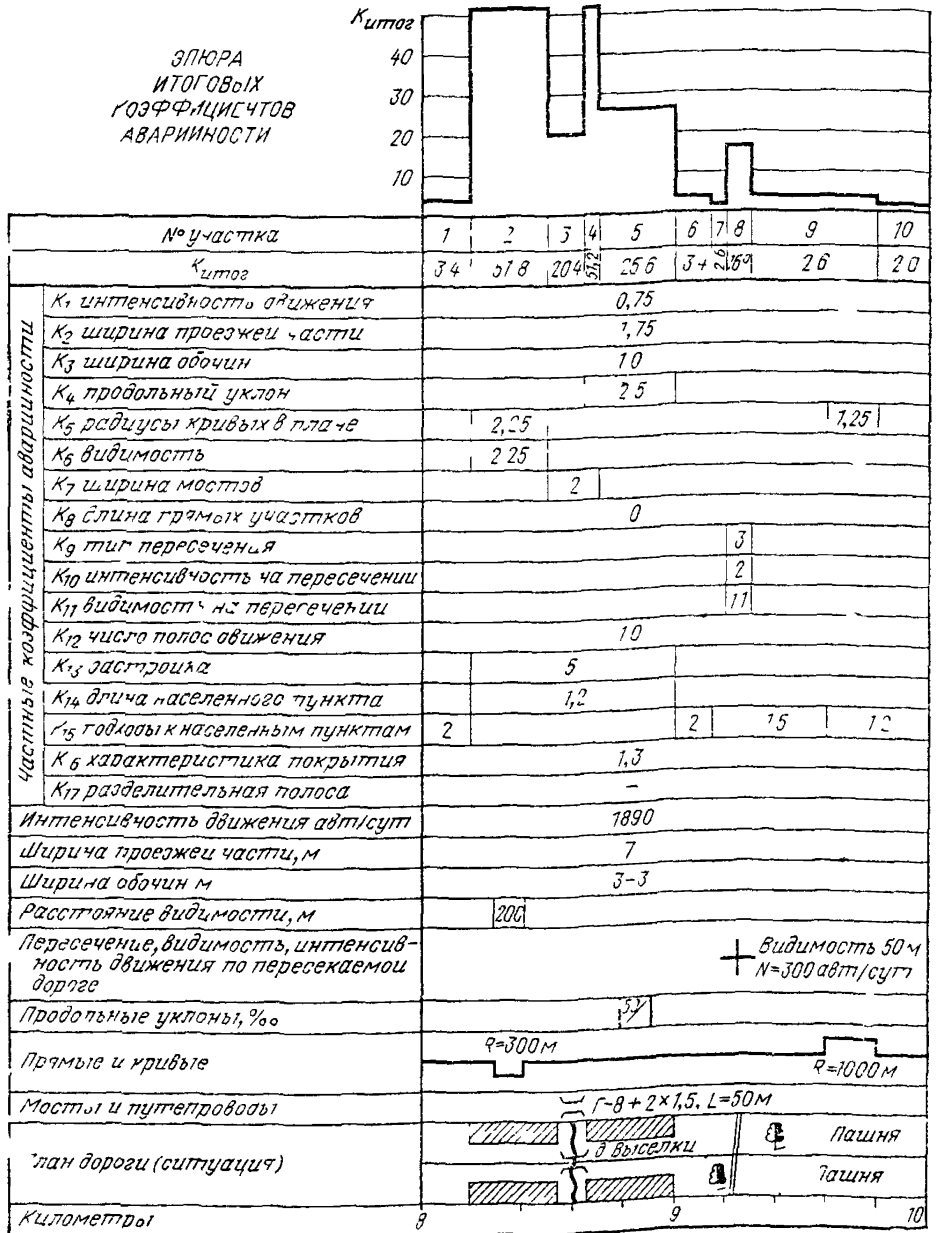 ЭПЮРА
ИТОГОВЫХ
КОЭФФИЦИЕНТОВ
АВАРИЙНОСТИ
Kитог
40
30
20
10
№ участка 1 2 3 4 5 6 7 8 9 10
Kитог 3 4 51 8 20 4 51,2 25 6 3 4 2 6 2 6 2 0
Частные коэффициенты аварийности
K1 интенсивность движения 0,75
K2 ширина проезжей части 1,75
K3 ширина обочин 1 0
K4 продольный уклон 2 5
K5 радиусы кривых в плане 2,25 1,25
K6 видимость 2 25
K7 ширина мостов 2
K8 длина прямых участков 0
K9 тип пересечения 3
K10 интенсивность на пересечении 2
K11 видимость на пересечении 1 1
K12 число полос движения 1 0
K13 застройка 5
K14 длина населенного пункта 1,2
K15 подходы к населенным пунктам 2 2 1 5 1 2
K 6 характеристика покрытия 1,3
K17 разделительная полоса –
Интенсивность движения авт/сут 1890
Ширина проезжей части, м 7
Ширина обочин м 3-3
Расстояние видимости, м 200
Пересечение, видимость, интенсив-
ность движения по пересекаемой
дороге
Видимость 50 м
N=300 авт/сут
Продольные уклоны, ‰
Прямые и кривые R=300 м R=1000 м
Мосты и путепроводы Г-8+2×1,5. L=50 м
План дороги (ситуация) д Выселки Пашня
Пашня
Километры 8 9 10